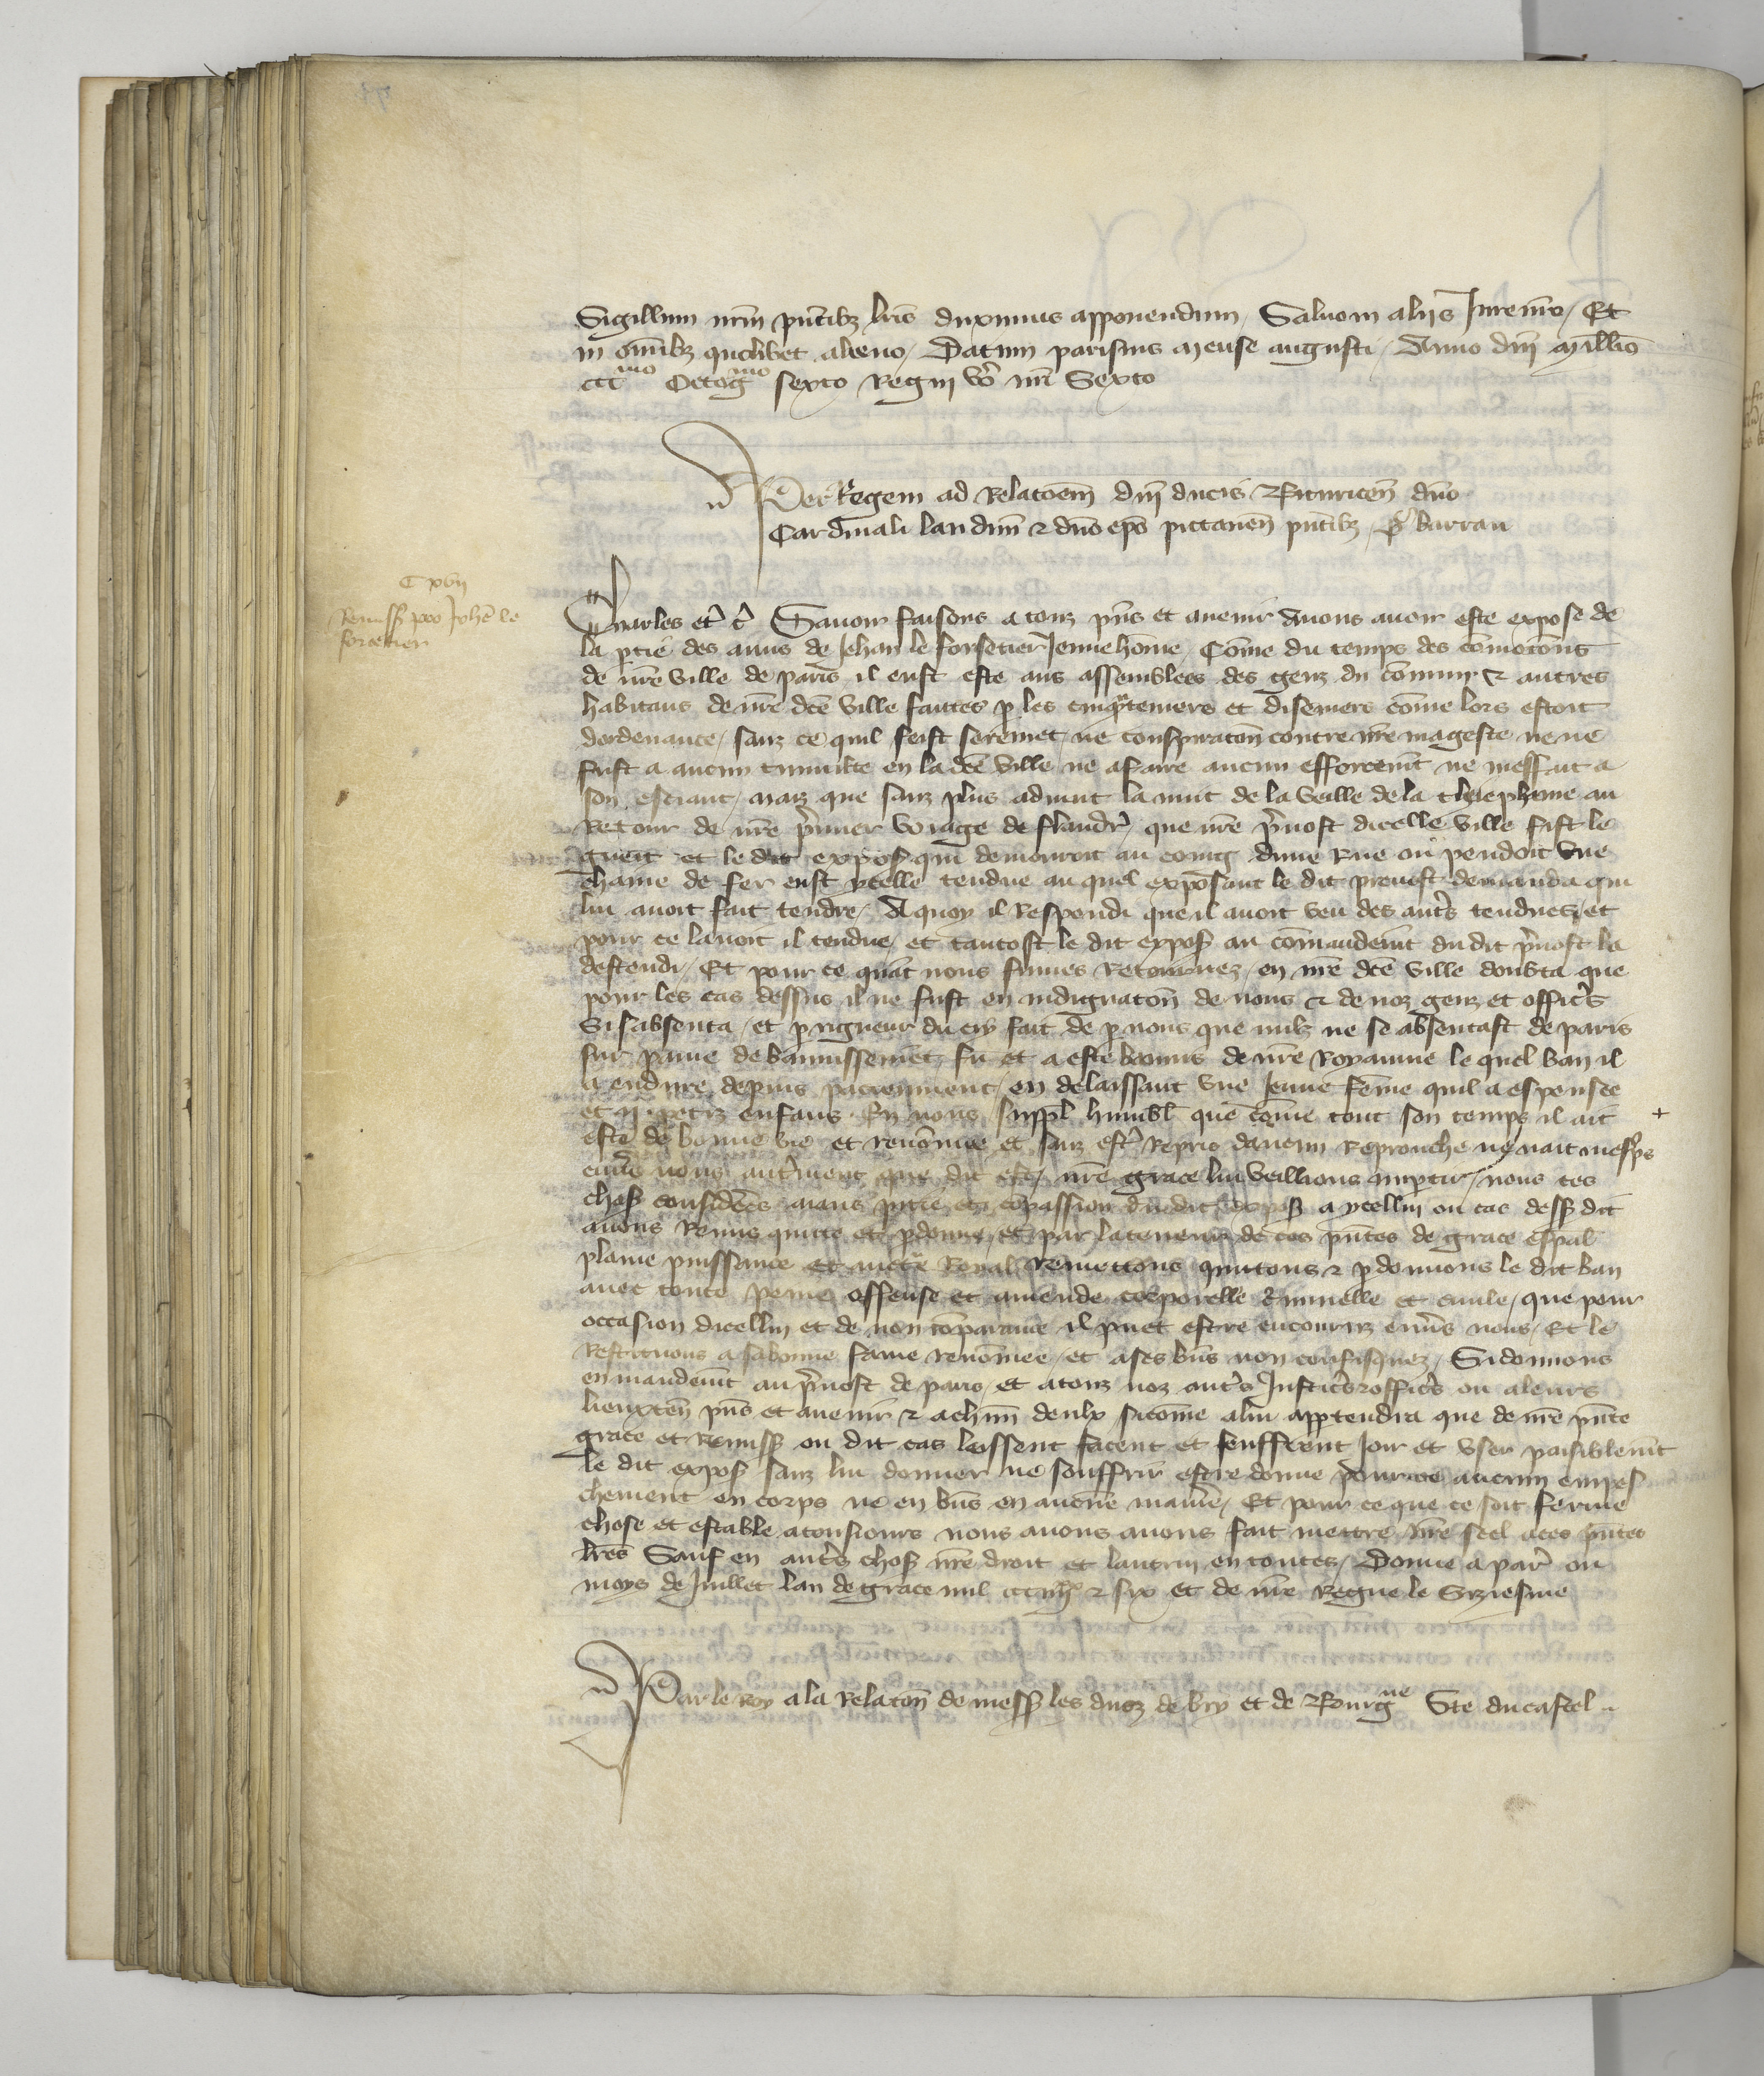 Sigillum nrm pntibz lris duximus apponendum, Saluo in alijs Jure nro, Et
in omibz quolibet alieno, Datum parisius mense augusti, Anno dni millmo
cccmo Octogmo sexto Regni vo nri Sexto
Per Regem ad Relatoem dni ducis Bituricen dno
Cardinali laudun & dno epo pictauen pntibz, P. barrau
C xvii
Remiss pro Johe le
forcetier
Charles etc Sauoir faisons a touz pns et auenir A nous auoir este expose de
la ptie des amis de Jehan le forsetier Jeune home, Come du temps des comocons
de nre ville de paris il eust este aus assemblees des genz du comun & autres
habitans de nre dce ville faittes p les cinqteniers et diseniers come lors estoit
dordenance, sanz ce quil feist seremet, ne conspiraton contre nre mageste ne ne
fust a aucun tumulte en la dce ville ne a faire aucun efforcemt ne meffait a
son esciant, maiz que sanz plus aduint la nuit de la veille de la thiephaine au
Retour de nre pmier voiage de flandr, que nre pruost dicelle ville fist le
gueit et le dit expos qui demouroit au coing dune Rue ou pendoit vne
chaine de fer eust ycelle tendue au quel exposant le dit preuost demanda qui
lui auoit fait tendre, A quoy il Respondi que il auoit veu des autrs tendues, et
pour ce lauoit il tendue, et tantost le dit expos au comandemt du dit pruost la
destendi, Et pour ce quat nous fumes Retournez, en nre dce ville doubta que
pour les cas dessus il ne fust en indignaton de nous & de noz genz et officrs
Si sabsenta, et p vigueur du cry fait de p nous que nulz ne se absentast de paris
sur paine de bannissemet, fu et a este banni de nre Royaume le quel ban il
a endure depuis paciemment, en delaissant vne Jeune feme quil a espousee
et ij petiz enfans En nous suppl humbl que come tout son temps il ait
este de bonne vie et renommee et sanz estr Repris daucun Reprouche ne nait mespris
enus nous autrement que dit est, nre grace lui veillions imptir, nous ces
chos consideres aians pitie et copassion du dit expos a ycellui ou cas dess dit
auons Remis quitte et pdonne, et par la teneur de ces pntes de grace espal
plaine puissance et auctr Royal Remettons quittons & pdonnons le dit ban
auec toute peine offense et amende corporelle cminelle et ciuile, que pour
occasion dicellui et de non comparance il puet estre encouruz enus nous, Et le
Restituons a sa bonne fame renommee, et a ses bns non confisquez, Si donnons
en mandemt au pruost de paris, et a touz noz autrs Justicrs & officrs ou a leurs
lieuxten pns et auenir & a chun deulx si come a lui apptendra que de nre pnte
grace et Remiss ou dit cas laissent facent et seuffrent Joir et vser paisiblemt
le dit expos sanz lui donner ne souffrir estre donne pour ce aucun empes
chement en corps ne en bns en aucune manie, Et pour ce que ce soit ferme
chose et estable a tousiours nous auons auons fait mettre nre seel a ces pntes
lres Sauf en autrs chos nre droit et lautrui en toutes, Donne a par ou
moys de Juillet lan de grace mil ccc iiijxx & six et de nre Regne le Siziesme
Par le Roy a la Relaton de mess les ducz de bry et de Bourgne Ste du castel